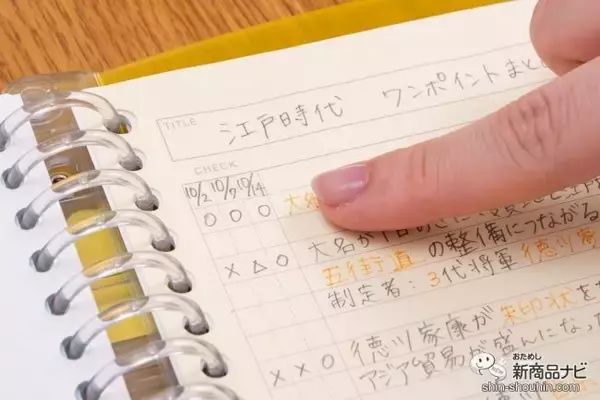 TITLE
江戸時代 ワンポイントまと
CHECK
10/2 10/9 10/14
○ ○ ○ 大
大名が1
× △ ○ 五街道の整備につながる
制定者：3代将軍 徳川家
徳川家康が朱印状を
× × ○ アジア貿易が盛んになっ
おためし
新商品ナビ
shin-shouhin.com